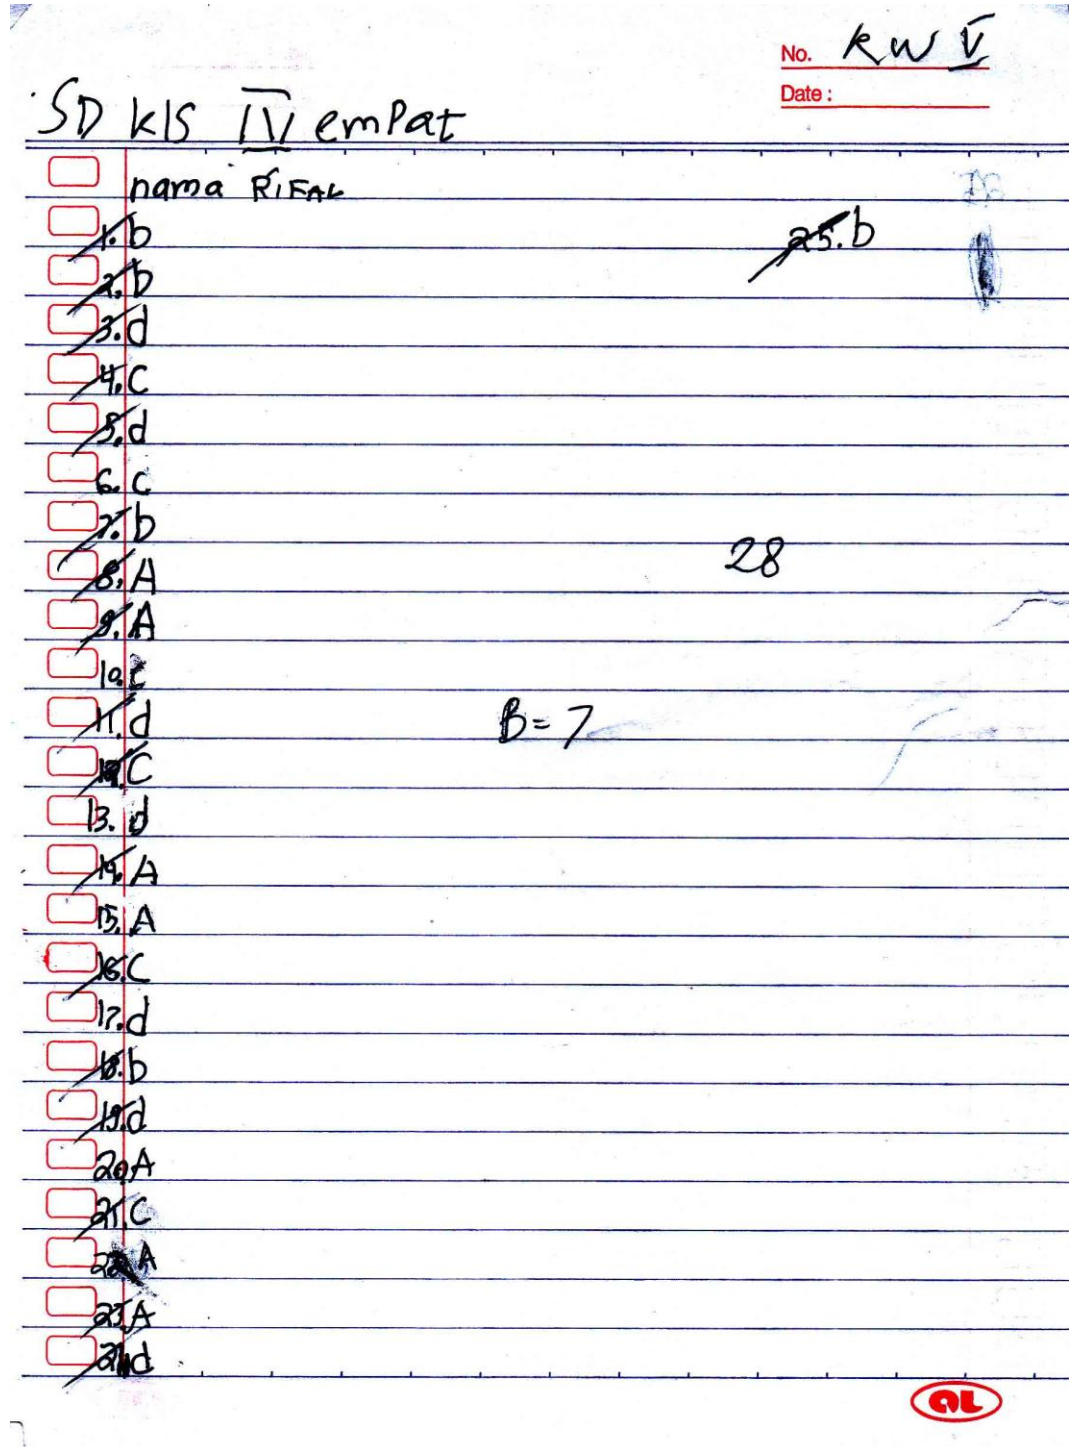 No. RW V
Date:
SD kls IV emPat
nama RIFAL
1. b
25. b
2. b
3. d
4. C
5. d
6. C
7. b
28
8. A
9. A
10. c
11. d
B = 7
12. C
13. d
14. A
15. A
16. C
17. d
18. b
19. d
20. A
21. C
22. A
23. A
24. d
QL